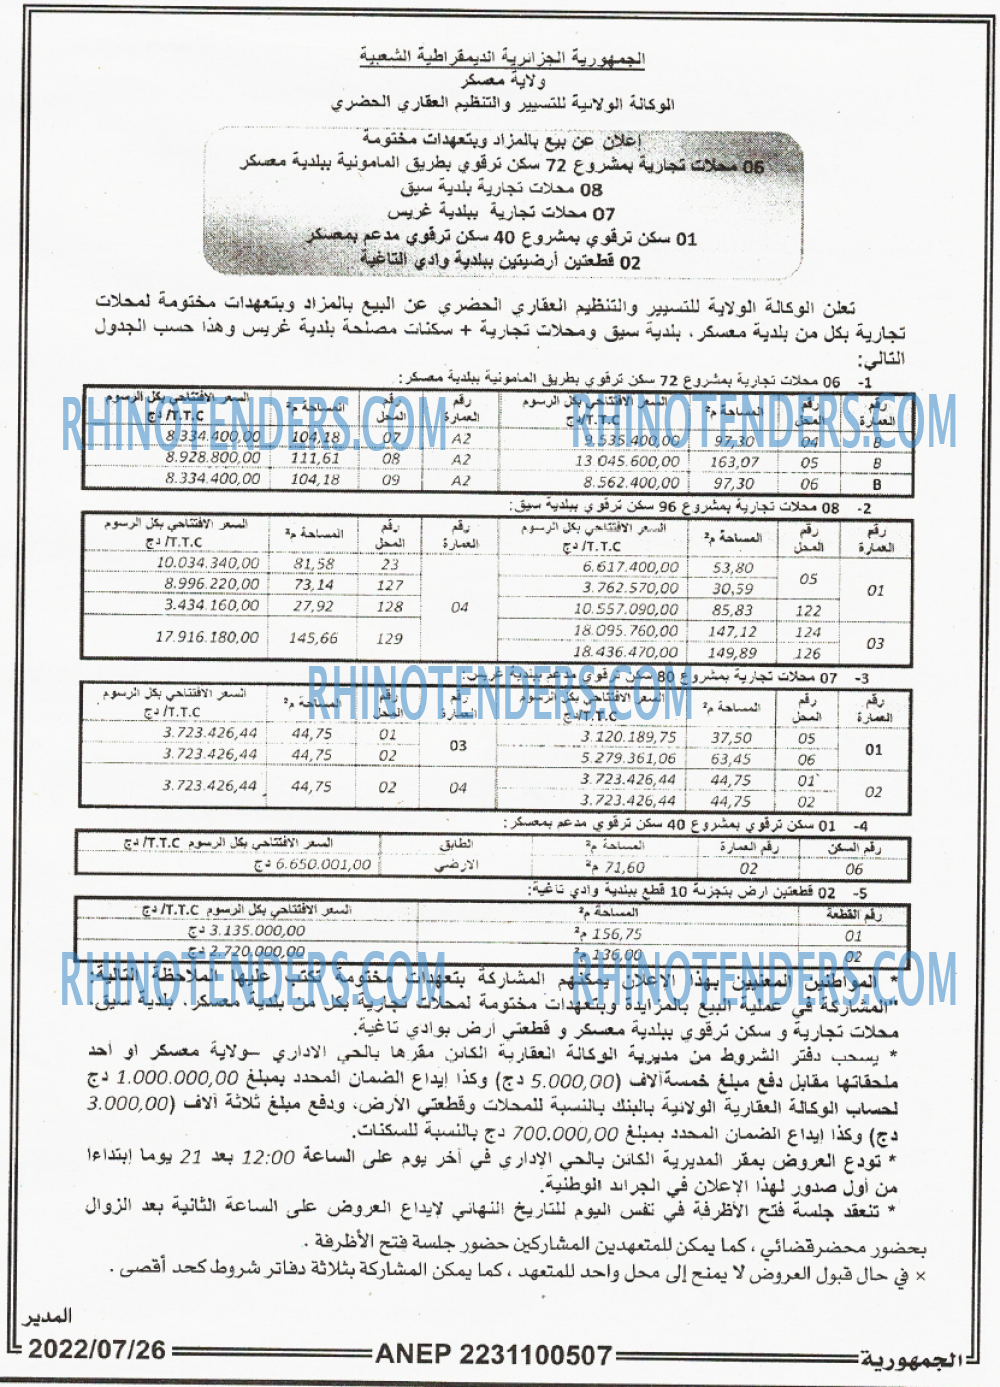 الجمهورية الجزائرية الديمقراطية الشعبية
ولاية معسكر
الوكالة الولائية للتسيير والتنظيم العقاري الحضري
إعلان عن بيع بالمزاد وبتعهدات مختومة
06 محلات تجارية بمشروع 72 سكن ترقوي بطريق المامونية ببلدية معسكر
08 محلات تجارية بلدية سيق
07 محلات تجارية ببلدية غريس
01 سكن ترقوي بمشروع 40 سكن ترقوي مدعم بمعسكر
02 قطعتين أرضيتين ببلدية وادي التاغية
تعلن الوكالة الولاية للتسيير والتنظيم العقاري الحضري عن البيع بالمزاد وبتعهدات مختومة لمحلات
تجارية بكل من بلدية معسكر، بلدية سيق ومحلات تجارية + سكنات مصلحة بلدية غريس وهذا حسب الجدول
التالي:
1- 06 محلات تجارية بمشروع 72 سكن ترقوي بطريق المامونية ببلدية معسكر:
رقم العمارة | رقم المحل | المساحة م² | السعر الافتتاحي بكل الرسوم T.T.C/ دج | رقم العمارة | رقم المحل | المساحة م² | السعر الافتتاحي بكل الرسوم T.T.C/ دج
B | 04 | 97,30 | 9.535.400,00 | A2 | 07 | 104,18 | 8.334.400,00
B | 05 | 163,07 | 13.045.600,00 | A2 | 08 | 111,61 | 8.928.800,00
B | 06 | 97,30 | 8.562.400,00 | A2 | 09 | 104,18 | 8.334.400,00
2- 08 محلات تجارية بمشروع 96 سكن ترقوي ببلدية سيق:
رقم العمارة | رقم المحل | المساحة م² | السعر الافتتاحي بكل الرسوم T.T.C/ دج | رقم العمارة | رقم المحل | المساحة م² | السعر الافتتاحي بكل الرسوم T.T.C/ دج
01 | 05 | 53,80 | 6.617.400,00 | 04 | 23 | 81,58 | 10.034.340,00
30,59 | 3.762.570,00 | 127 | 73,14 | 8.996.220,00
122 | 85,83 | 10.557.090,00 | 128 | 27,92 | 3.434.160,00
03 | 124 | 147,12 | 18.095.760,00 | 129 | 145,66 | 17.916.180,00
126 | 149,89 | 18.436.470,00
3- 07 محلات تجارية بمشروع 80 سكن ترقوي مدعم ببلدية غريس:
رقم العمارة | رقم المحل | المساحة م² | السعر الافتتاحي بكل الرسوم T.T.C/ دج | رقم العمارة | رقم المحل | المساحة م² | السعر الافتتاحي بكل الرسوم T.T.C/ دج
01 | 05 | 37,50 | 3.120.189,75 | 03 | 01 | 44,75 | 3.723.426,44
06 | 63,45 | 5.279.361,06 | 02 | 44,75 | 3.723.426,44
02 | 01 | 44,75 | 3.723.426,44 | 04 | 02 | 44,75 | 3.723.426,44
02 | 44,75 | 3.723.426,44
4- 01 سكن ترقوي بمشروع 40 سكن ترقوي مدعم بمعسكر:
رقم السكن | رقم العمارة | المساحة م² | الطابق | السعر الافتتاحي بكل الرسوم T.T.C/ دج
06 | 02 | 71,60 م² | الارضي | 6.650.001,00 دج
5- 02 قطعتين ارض بتجزئة 10 قطع ببلدية وادي تاغية:
رقم القطعة | المساحة م² | السعر الافتتاحي بكل الرسوم T.T.C/ دج
01 | 156,75 م² | 3.135.000,00 دج
02 | 136,00 م² | 2.720.000,00 دج
* المواطنين المعنيين بهذا الإعلان يمكنهم المشاركة بتعهدات مختومة تكتب عليها الملاحظة التالية:
"المشاركة في عملية البيع بالمزايدة وبتعهدات مختومة لمحلات تجارية بكل من بلدية معسكر، بلدية سيق"
محلات تجارية و سكن ترقوي ببلدية معسكر و قطعتي أرض بوادي تاغية.
* يسحب دفتر الشروط من مديرية الوكالة العقارية الكائن مقرها بالحي الاداري –ولاية معسكر او أحد
ملحقاتها مقابل دفع مبلغ خمسةآلاف (5.000,00 دج) وكذا إيداع الضمان المحدد بمبلغ 1.000.000,00 دج
لحساب الوكالة العقارية الولائية بالبنك بالنسبة للمحلات وقطعتي الأرض، ودفع مبلغ ثلاثة آلاف (3.000,00
دج) وكذا إيداع الضمان المحدد بمبلغ 700.000,00 دج بالنسبة للسكنات.
* تودع العروض بمقر المديرية الكائن بالحي الإداري في آخر يوم على الساعة 12:00 بعد 21 يوما إبتداءا
من أول صدور لهذا الإعلان في الجرائد الوطنية.
* تنعقد جلسة فتح الأظرفة في نفس اليوم للتاريخ النهائي لإيداع العروض على الساعة الثانية بعد الزوال
بحضور محضرقضائي ، كما يمكن للمتعهدين المشاركين حضور جلسة فتح الأظرفة .
× في حال قبول العروض لا يمنح إلى محل واحد للمتعهد ، كما يمكن المشاركة بثلاثة دفاتر شروط كحد أقصى .
المدير
الجمهورية ANEP 2231100507 2022/07/26
RHINOTENDERS.COM
RHINOTENDERS.COM
RHINOTENDERS.COM
RHINOTENDERS.COM
RHINOTENDERS.COM